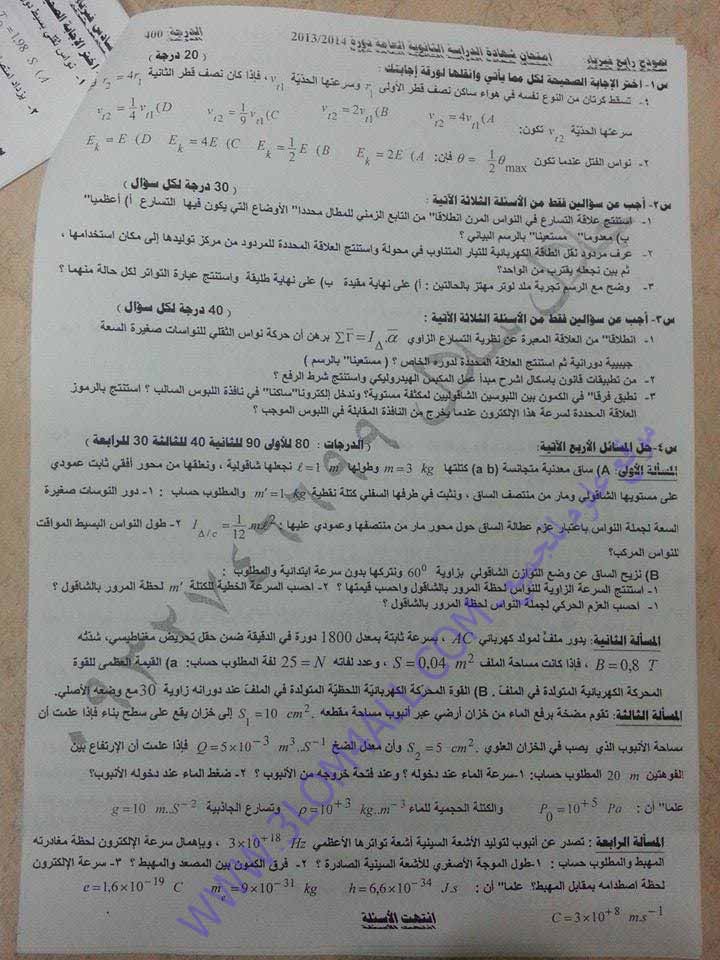 نموذج رابع فيزياء
امتحان شهادة الدراسة الثانوية العامة دورة 2013/2014
الدرجة: 400
س1- اختر الإجابة الصحيحة لكل مما يأتي وانقلها لورقة إجابتك :
( 20 درجة )
1- تسقط كرتان من النوع نفسه في هواء ساكن نصف قطر الأولى r1 وسرعتها الحدية vt1 ، فإذا كان نصف قطر الثانية r2 = 4r1 و
سرعتها الحدية vt2 تكون: vt2 = 4vt1 (A vt2 = 2vt1 (B vt2 = 1/9 vt1 (C vt2 = 1/4 vt1 (D
2- نواس الفتل عندما تكون θ = 1/2 θmax فإن: Ek = 2E (A Ek = 1/2 E (B Ek = 4E (C Ek = E (D
س2- أجب عن سؤالين فقط من الأسئلة الثلاثة الآتية :
( 30 درجة لكل سؤال )
1- استنتج علاقة التسارع في النواس المرن انطلاقا" من التابع الزمني للمطال محددا" الأوضاع التي يكون فيها التسارع أ) أعظميا"
ب) معدوما" مستعينا" بالرسم البياني ؟
2- عرف مردود نقل الطاقة الكهربائية للتيار المتناوب في محولة واستنتج العلاقة المحددة للمردود من مركز توليدها إلى مكان استخدامها ،
ثم بين نجعله يقترب من الواحد؟
3- وضح مع الرسم تجربة ملد لوتر مهتز بالحالتين : أ) على نهاية مقيدة ب) على نهاية طليقة واستنتج عبارة التواتر لكل حالة منهما ؟
س3- أجب عن سؤالين فقط من الأسئلة الثلاثة الآتية :
( 40 درجة لكل سؤال )
1- انطلاقا" من العلاقة المعبرة عن نظرية التسارع الزاوي ∑Γ = IΔ.α برهن أن حركة نواس الثقلي للنواسات صغيرة السعة
جيبية دورانية ثم استنتج العلاقة المحددة لدوره الخاص ؟ ( مستعينا" بالرسم )
2- من تطبيقات قانون باسكال اشرح مبدأ عمل المكبس الهيدروليكي واستنتج شرط الرفع ؟
3- نطبق فرقا" في الكمون بين اللبوسين الشاقوليين لمكثفة مستوية؟ وندخل إلكترونا"ساكنا" في نافذة اللبوس السالب ؟ استنتج بالرموز
العلاقة المحددة لسرعة هذا الإلكترون عندما يخرج من النافذة المقابلة في اللبوس الموجب ؟
س4-حل المسائل الأربع الآتية:
(الدرجات : 80 للأولى 90 للثانية 40 للثالثة 30 للرابعة )
المسألة الأولى: A) ساق معدنية متجانسة (a b) كتلتها m = 3 kg وطولها ℓ = 1 m نجعلها شاقولية ، ونعلقها من محور أفقي ثابت عمودي
على مستويها الشاقولي ومار من منتصف الساق ، ونثبت في طرفها السفلي كتلة نقطية m' = 1 kg والمطلوب حساب : 1- دور النوسات صغيرة
السعة لجملة النواس باعتبار عزم عطالة الساق حول محور مار من منتصفها وعمودي عليها : IΔ/c = 1/12 mℓ² 2- طول النواس البسيط المواقت
للنواس المركب؟
B) نزيح الساق عن وضع التوازن الشاقولي بزاوية 60⁰ ونتركها بدون سرعة ابتدائية والمطلوب :
1- استنتج السرعة الزاوية للنواس لحظة المرور بالشاقول واحسب قيمتها ؟ 2- احسب السرعة الخطية للكتلة m' لحظة المرور بالشاقول ؟
1- احسب العزم الحركي لجملة النواس لحظة المرور بالشاقول ؟
المسألة الثانية: يدور ملف لمولد كهربائي AC ، بسرعة ثابتة بمعدل 1800 دورة في الدقيقة ضمن حقل تحريض مغناطيسي، شدته
B = 0,8 T ، فإذا كانت مساحة الملف S = 0,04 m² ، وعدد لفاته N = 25 لفة المطلوب حساب: a) القيمة العظمى للقوة
المحركة الكهربائية المتولدة في الملف . B) القوة المحركة الكهربائية اللحظية المتولدة في الملف عند دورانه زاوية 30 مع وضعه الأصلي.
المسألة الثالثة: تقوم مضخة برفع الماء من خزان أرضي عبر أنبوب مساحة مقطعه S1 = 10 cm². إلى خزان يقع على سطح بناء فإذا علمت أن
مساحة الأنبوب الذي يصب في الخزان العلوي S2 = 5 cm². وأن معدل الضخ Q = 5×10⁻³ m³.S⁻¹ فإذا علمت أن الارتفاع بين
الفوهتين 20 m المطلوب حساب: 1-سرعة الماء عند دخوله ؟ وعند فتحة خروجه من الأنبوب ؟ 2- ضغط الماء عند دخوله الأنبوب؟
علما" أن : P0 = 10⁺⁵ Pa والكتلة الحجمية للماء ρ = 10⁺³ kg.m⁻³ وتسارع الجاذبية g = 10 m.S⁻²
المسألة الرابعة : تصدر عن أنبوب لتوليد الأشعة السينية أشعة تواترها الأعظمي 3×10⁺¹⁸ Hz ، وبإهمال سرعة الإلكترون لحظة مغادرته
المهبط والمطلوب حساب : 1-طول الموجة الأصغري للأشعة السينية الصادرة ؟ 2- فرق الكمون بين المصعد والمهبط ؟ 3- سرعة الإلكترون
لحظة اصطدامه بمقابل المهبط؟ علما" أن : h = 6,6×10⁻³⁴ J.s me = 9×10⁻³¹ kg e = 1,6×10⁻¹⁹ C
C = 3×10⁺⁸ m.s⁻¹
انتهت الأسئلة
WWW.3LOMMALL.COM